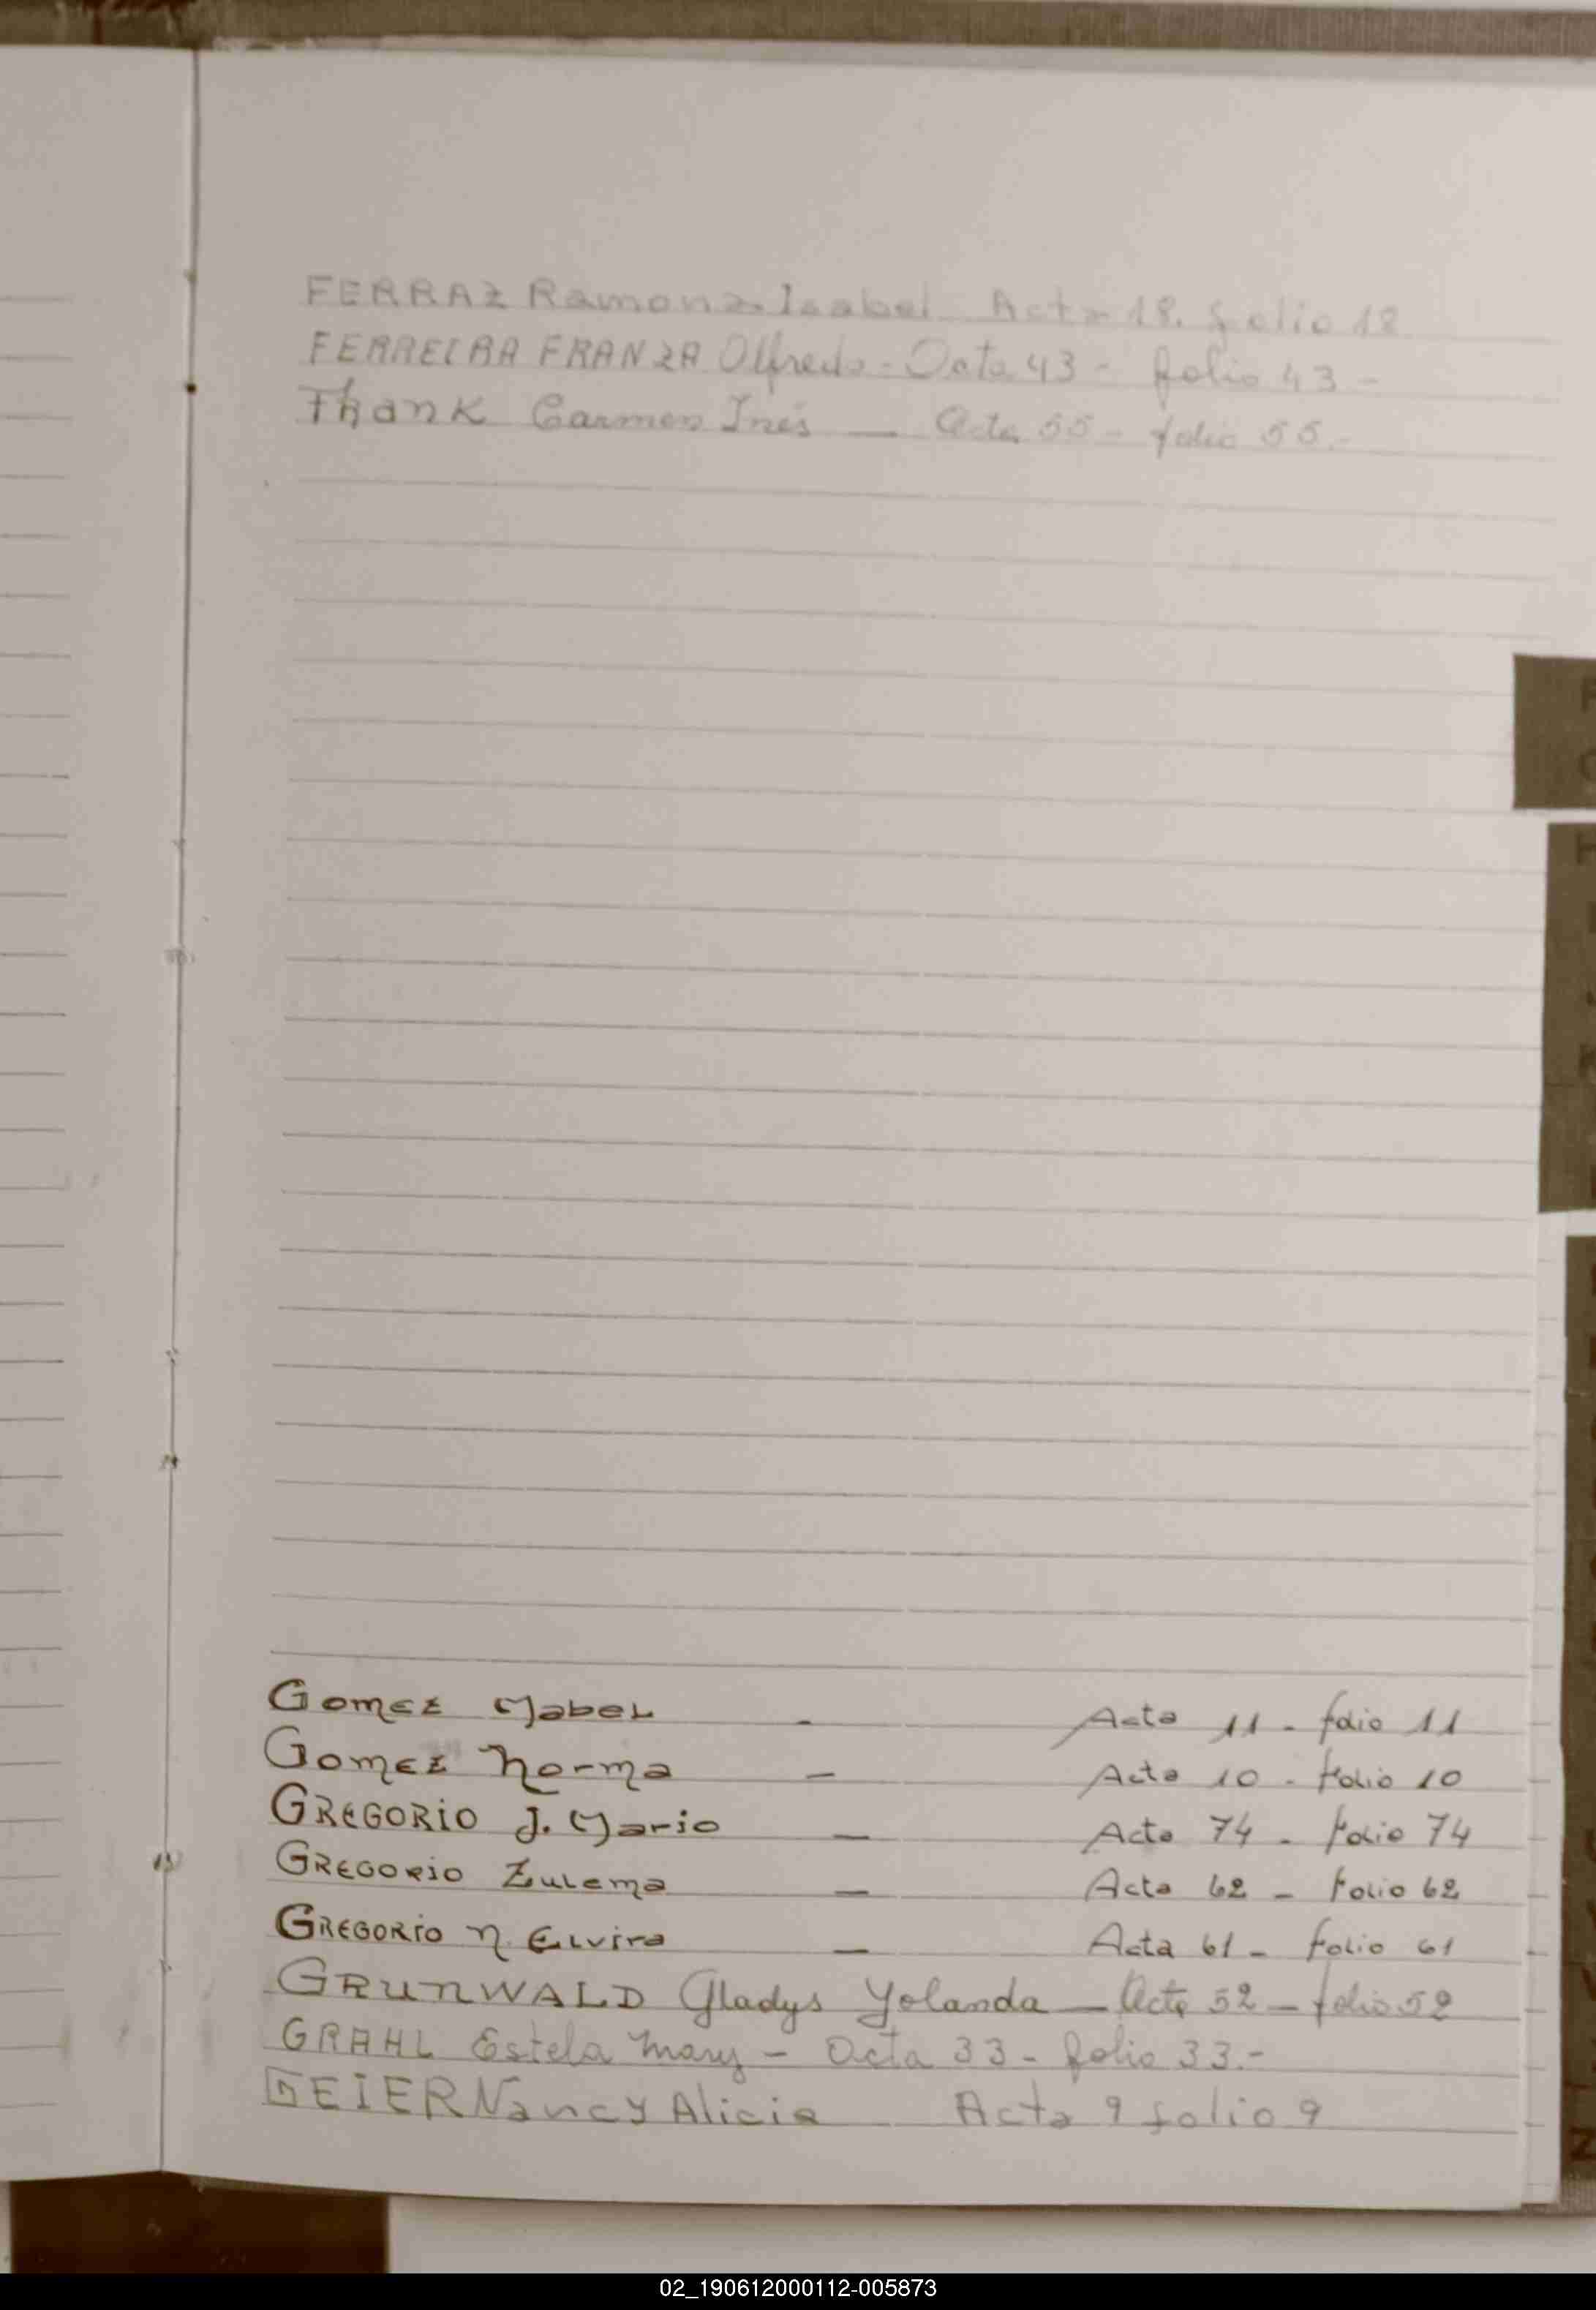 FERRAZ Ramona Isabel Acta 18. folio 18
FERREIRA FRANZA Alfredo - Acta 43 - folio 43 -
FhanK Carmen Inés — Acta 55 - folio 55.-
Gomez Mabel - Acta 11 - folio 11
Gomez Norma - Acta 10 - folio 10
GREGORIO J. Mario - Acta 74 - folio 74
GREGORIO Zulema - Acta 62 - folio 62
GREGORIO N. Elvira - Acta 61 - folio 61
GRUNWALD Gladys Yolanda — Acta 52 — folio 52
GRAHL Estela Mary - Acta 33 - folio 33.-
GEIER Nancy Alicia Acta 9 folio 9
02_190612000112-005873